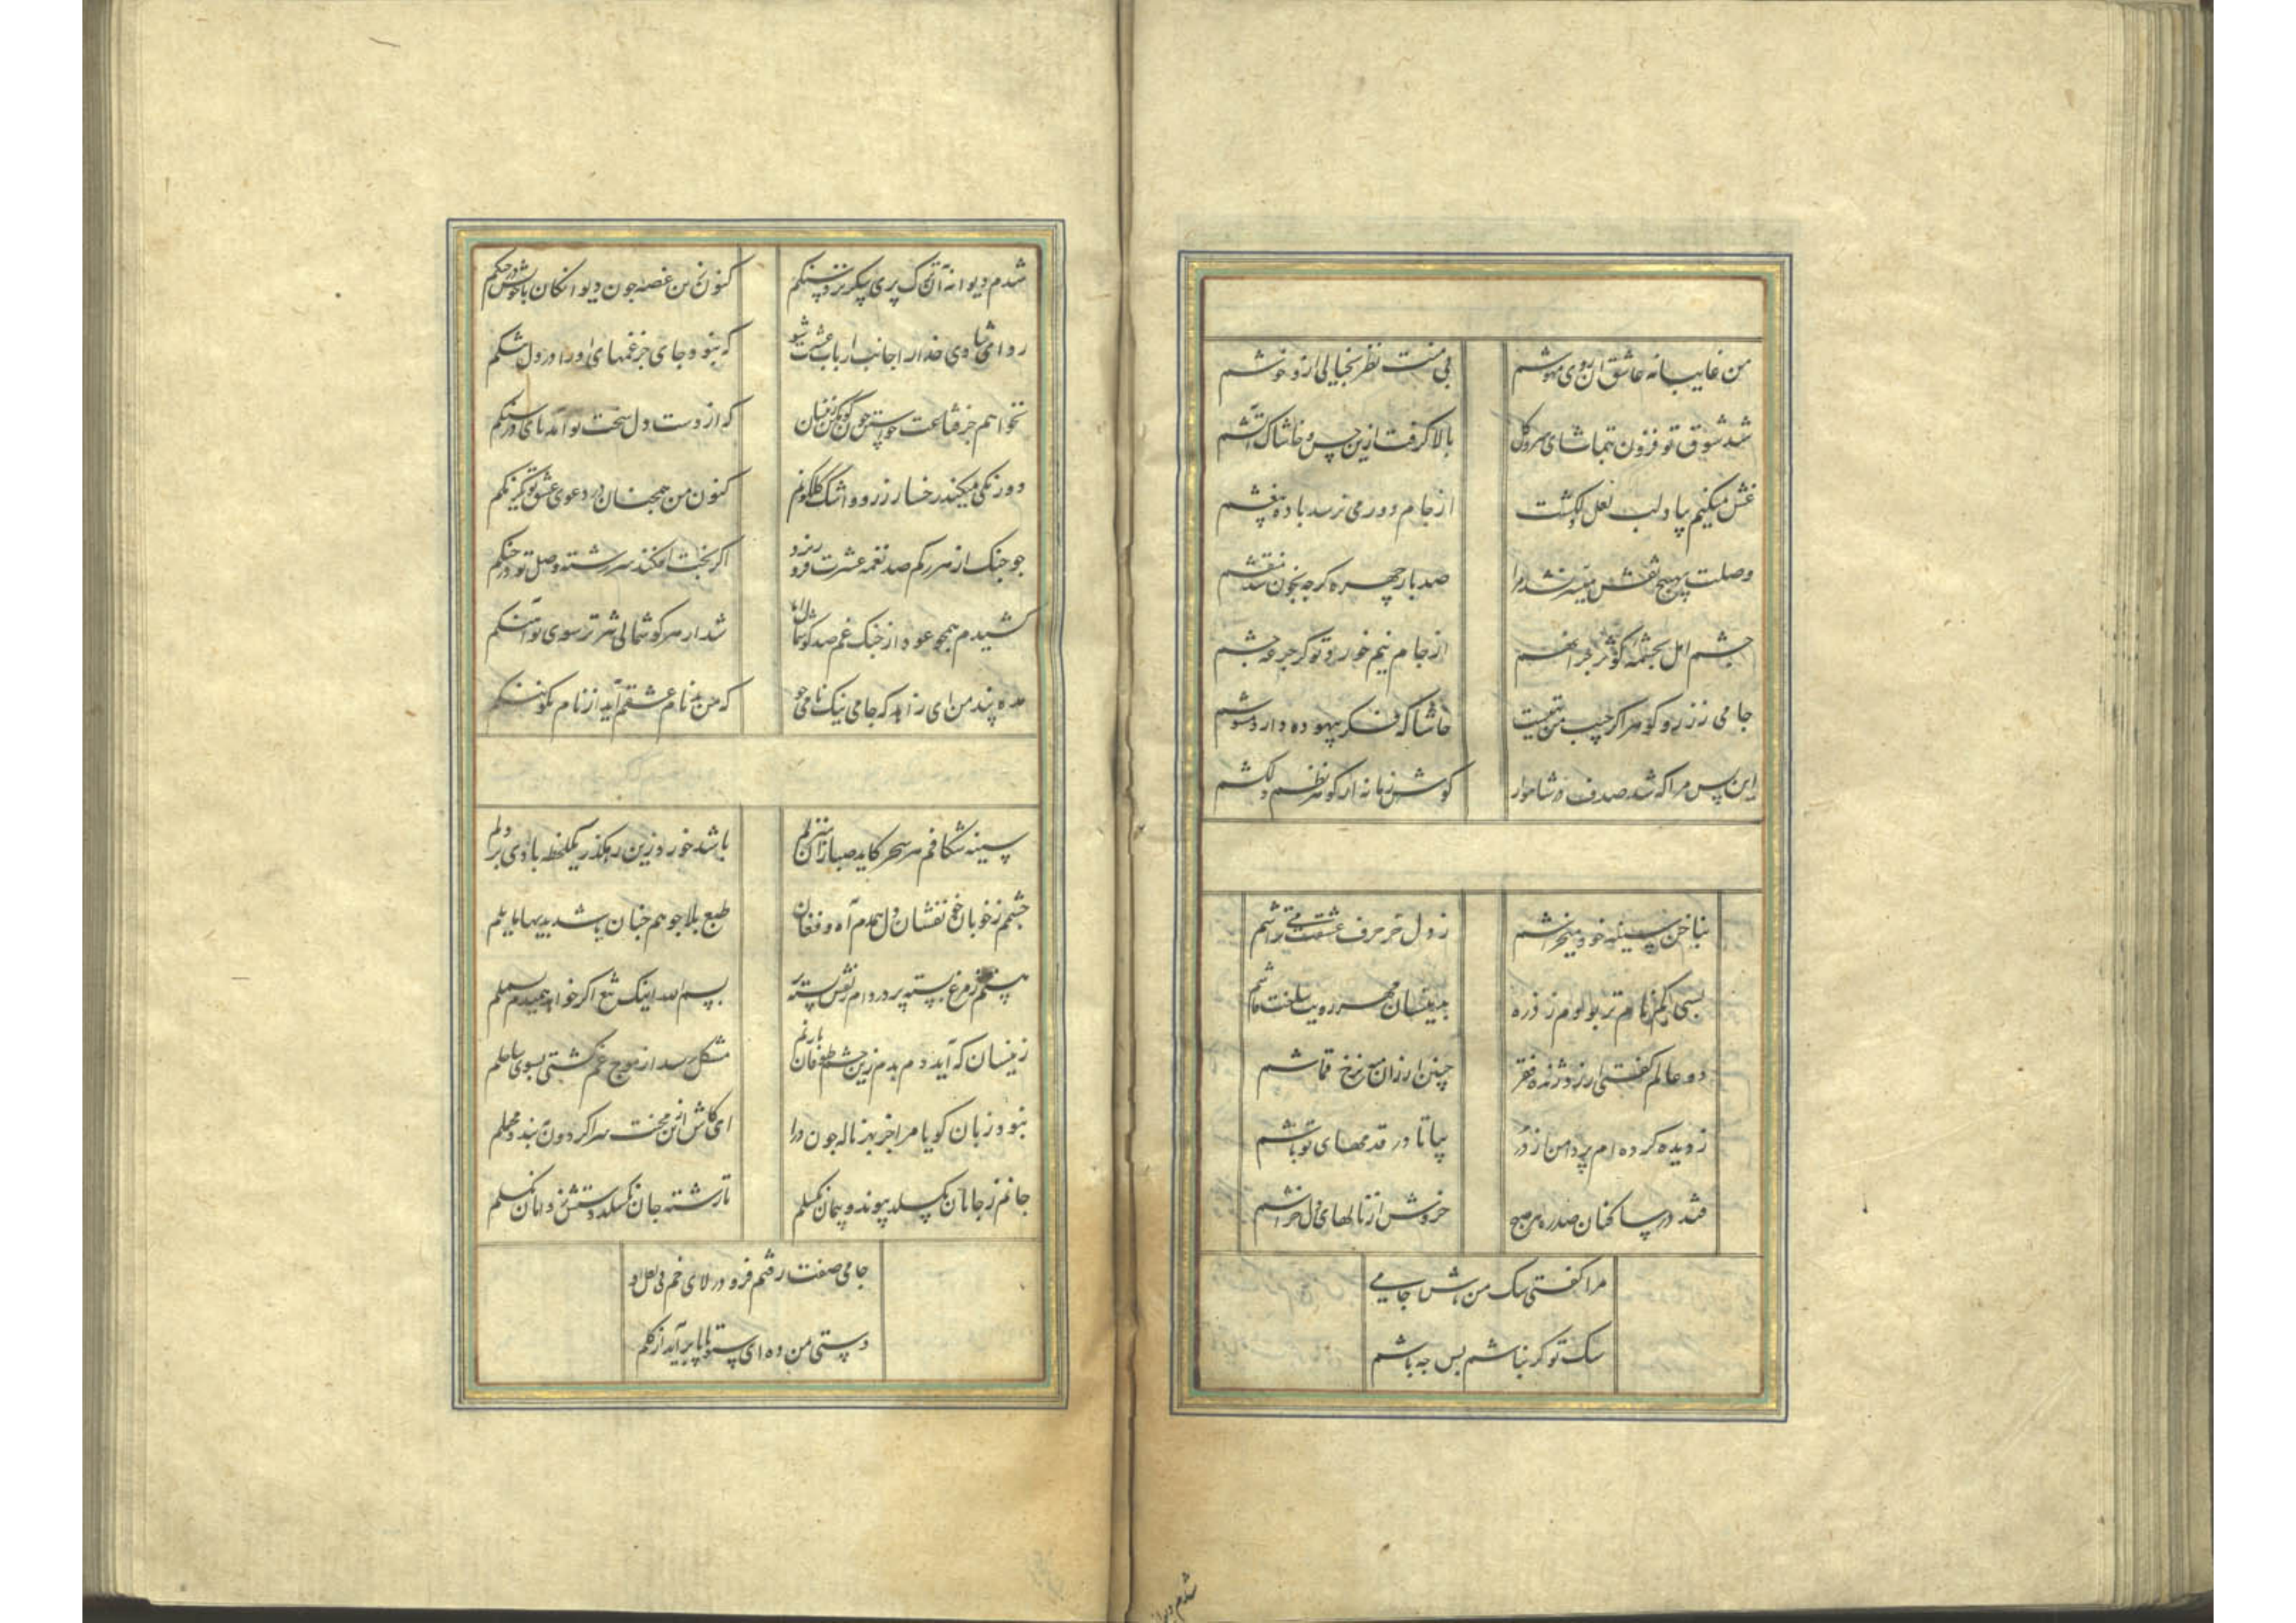 من غایبانه عاشق آن روی مهوشم
بی منت نظر بخیالی ازو خوشم
شد شوق تو فزون بتماشای سرو و گل
بالا گرفت ازین خس و خاشاک آتشم
غش میکنم بیاد لب لعل
از جام دور می نرسد باده بیغشم
وصلت بهیچ نقش میسر نشد مرا
صد بار چهره گرچه بخون شد منقشم
چشم امل بچشمه کوثر چرا نهم
از جام نیم خورد تو گر جرعه چشم
جامی ز زر و گوهر اگر جیب من تهیست
حاشا که فکر بیهوده دارد مشوشم
این بس مرا که شد صدف در شاهوار
گوش زمانه از گهر نظم دلکشم
بناخن سینه خود میخراشم
ز دل جز حرف عشقت می تراشم
بسی کم نام تر بودم ز ذره
بدینسان مهر رویت ساخت فاشم
دو عالم گفتی ارزد ژنده فقر
چنین ارزان منه نرخ قماشم
ز دیده کرده ام پر دامن از در
بیا تا در قدمهای تو پاشم
فتد در ساکنان صدره هر صبح
خروش از نالهای دل خراشم
مرا گفتی سگ من باش جامی
سگ تو گر نباشم پس چه باشم
شدم دیوانه آن ترک پری پیکر نزد سنگم
کنون زین غصه چون دیوانگان با خویش در جنگم
رو ای شادی خدا را جانب ارباب عشرت شو
که نبود جای جز غمهای او را در دل تنگم
نخواهم جز فضاحت خواستن چون کوهکن زینسان
که از دست دل سخت تو آمد پای در سنگم
دو رنگی میکند رخسار زرد و اشک گلگونم
کنون من همچنان در دعوی عشق تو یکرنگم
چو چنگ از هر رگم صد نغمه عشرت فرو ریزد
اگر بخت افکند سررشته وصل تو در چنگم
کشیدم همچو عود از چنگ غم صد گوشمال اما
شد از هر گوشمالی تیزتر سوی تو آهنگم
مده پند من ای زاهد که جامی نیک نامی جو
که من بدنام عشقم آید از نام نکو ننگم
سینه شکافم هر سحر کاید صبا زان منزلم
باشد خورد زین رهگذر یکلحظه بادی بر دلم
چشمم ز خوبان خون فشان دل همدم آه و فغان
طبع بلاجو همچنان باشد بدیها مایلم
هستم ز مرغ بسته پر در دام زلفش بسته تر
بسم الله اینک تیغ اگر خواهد چو صیدم بسملم
زینسان که آید دم بدم زین چشم طوفان بار نم
مشکل رسد از موج غم کشتی بسوی ساحلم
نبود زبان گویا مرا جز بهر ناله چون درا
ای کاش ازین محنت سرا گردون نبندد محملم
جانم ز جانان نگسلد پیوند و پیمان نگسلم
تا رشته جان نگسلد دستش ز دامان نگسلم
جامی صفت رفتم فرو در لای خم بی لعل او
دستی بمن ده ای سبو تا پا برآید از گلم